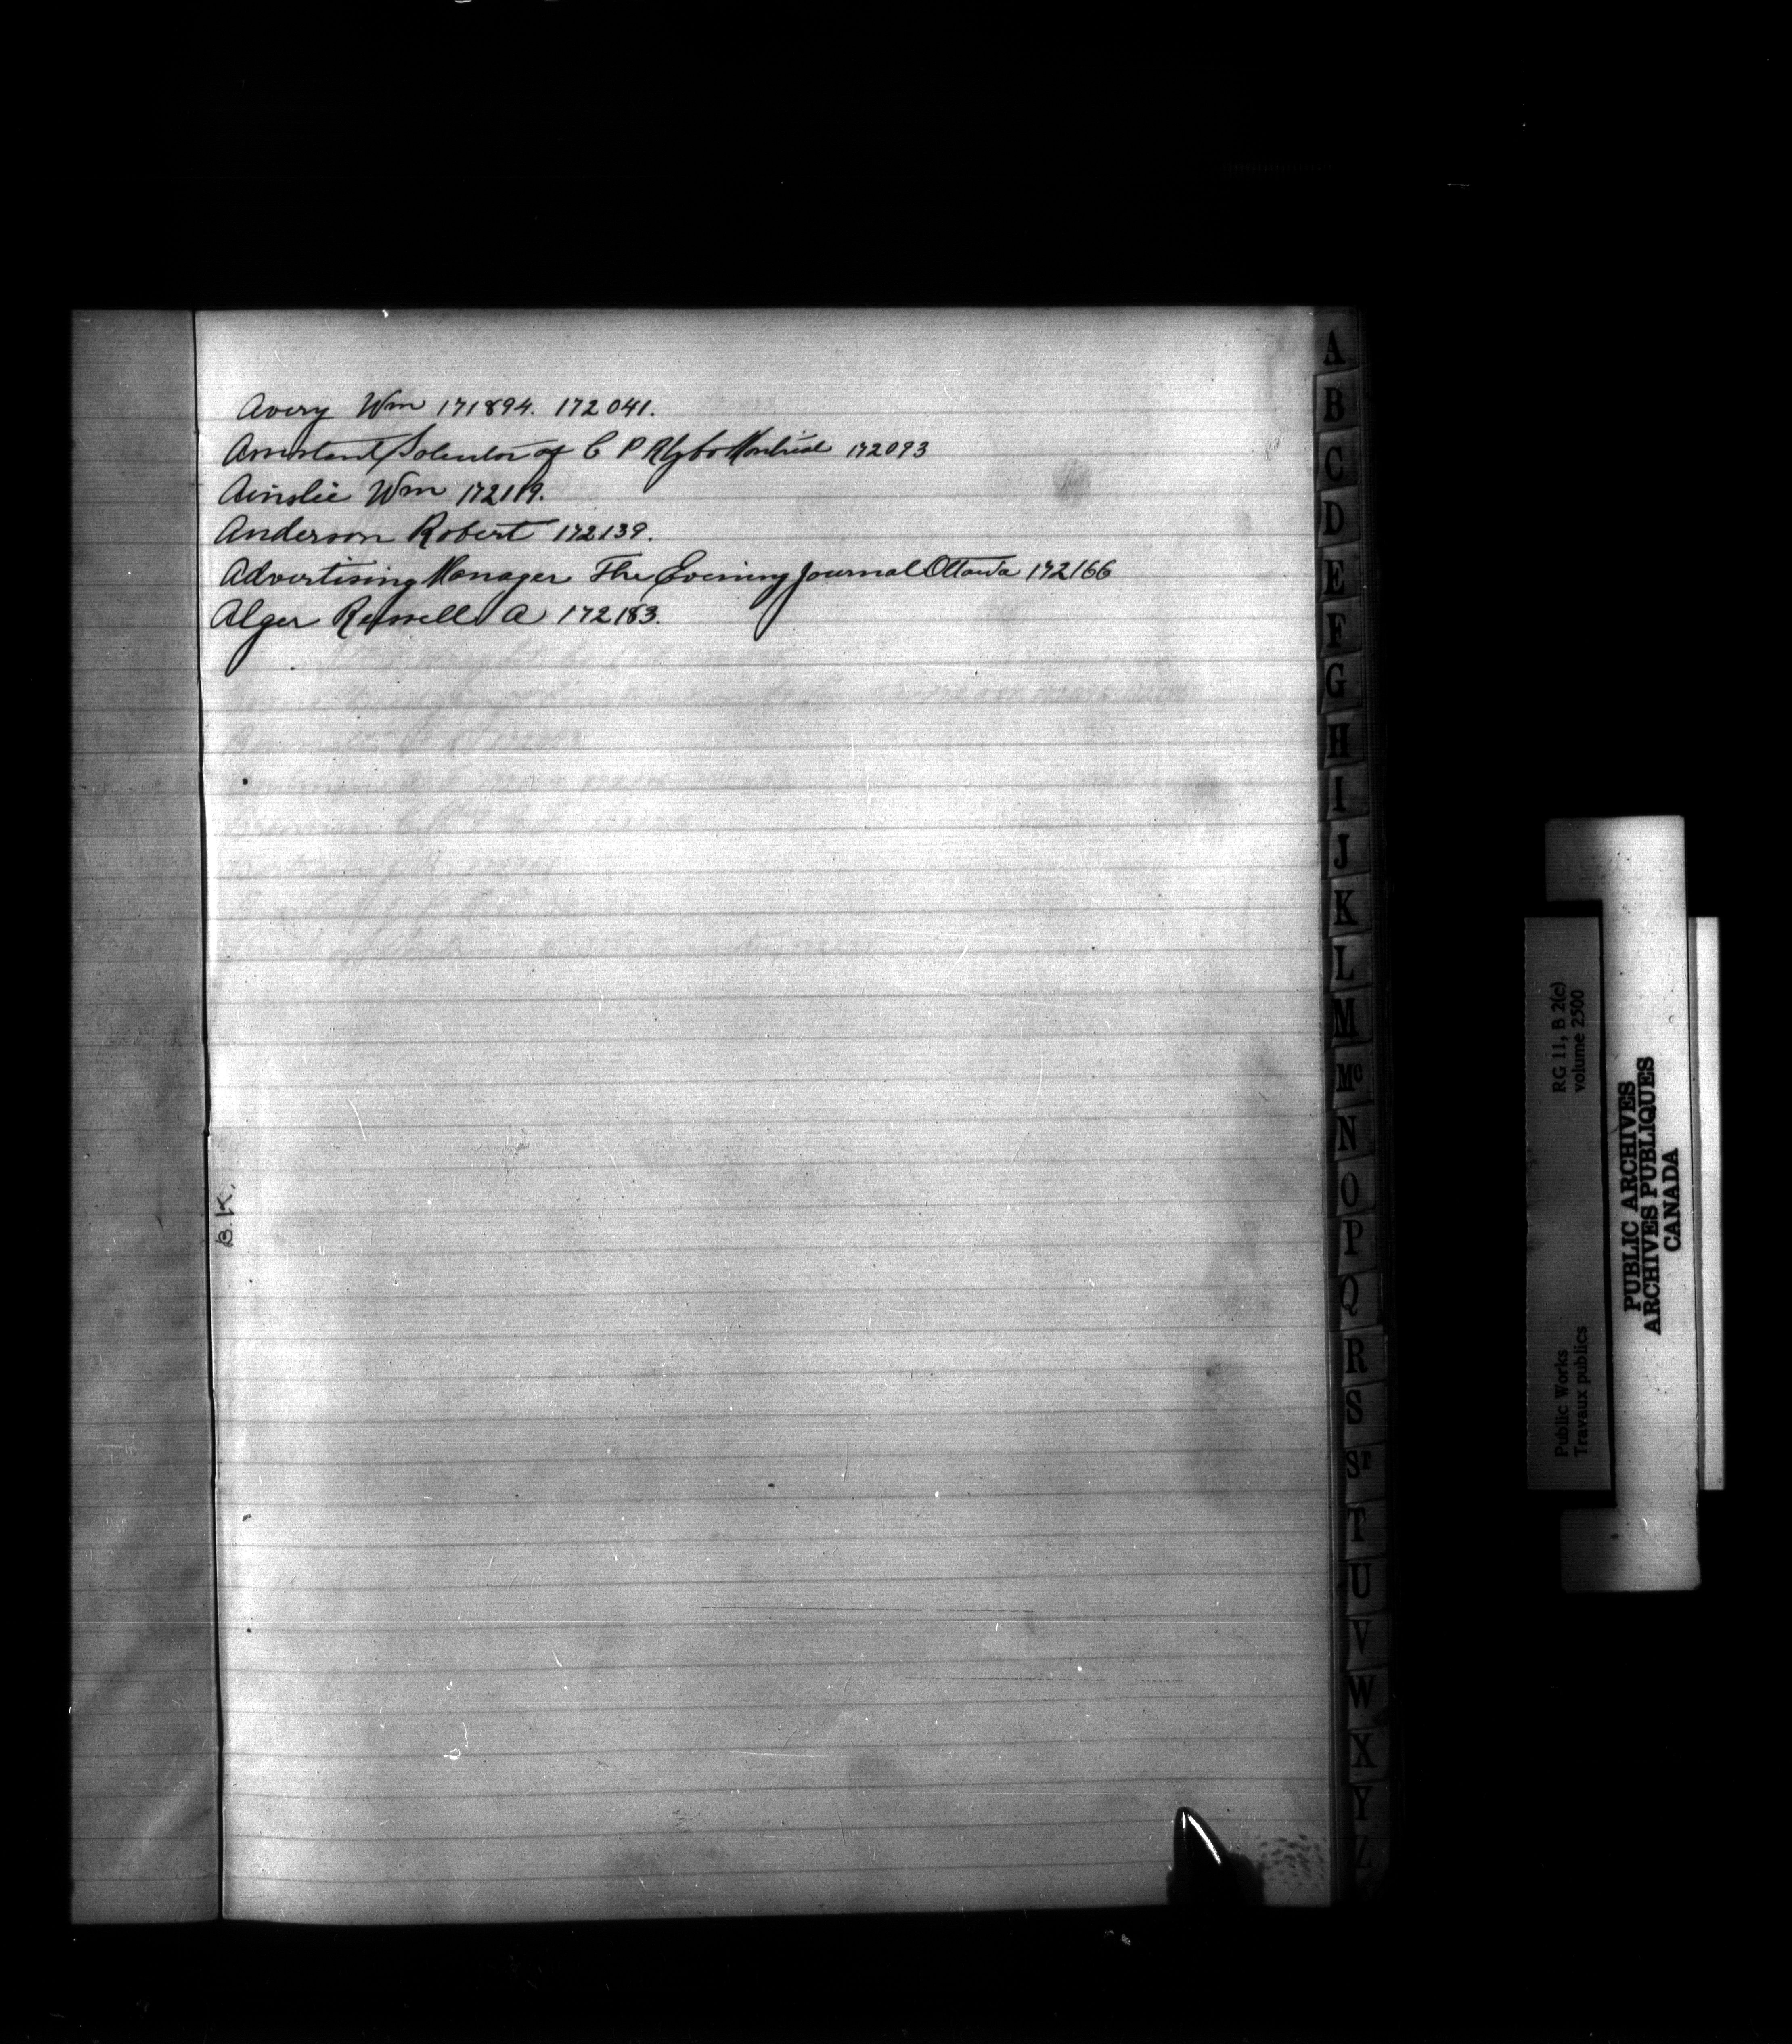 Avery Wm 171894. 172041.
Assistant Solicitor of C P Rly Co Montreal 172093
Ainslie Wm 172119.
Anderson Robert 172139.
Advertising Manager The Evening Journal Ottawa 172166
Alger Russell A 172183.
B.K.
A
B
C
D
E
F
G
H
I
J
K
L
M
Mc
N
O
P
Q
R
S
ST
T
U
V
W
X
Y
Z
Public Works
Travaux publics
RG 11, B 2(c)
volume 2500
PUBLIC ARCHIVES
ARCHIVES PUBLIQUES
CANADA